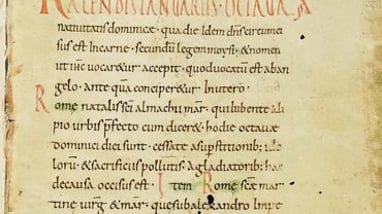 KALENDIS IANUARIIS · OCTAUAS
natiuitatis dominicæ · qua die Idem dns circumci
sus est In carne · secundum legem moysi · & nomen
ut ihc uocaretur accepit · quod uocatum est ab an
gelo · ante quam conciperetur In utero ·
Rome natalis sci almachi mar · qui Iubente ali
pio urbis præfecto cum dicer& · hodie octauæ
dominici diei sunt · cessate a superstitionib; ido
lorum · & sacrificiis pollutis · a gladiatorib; hac
de causa occisus est · Item Rome scæ mar
tine uirg & mar · que sub alexandro Impe